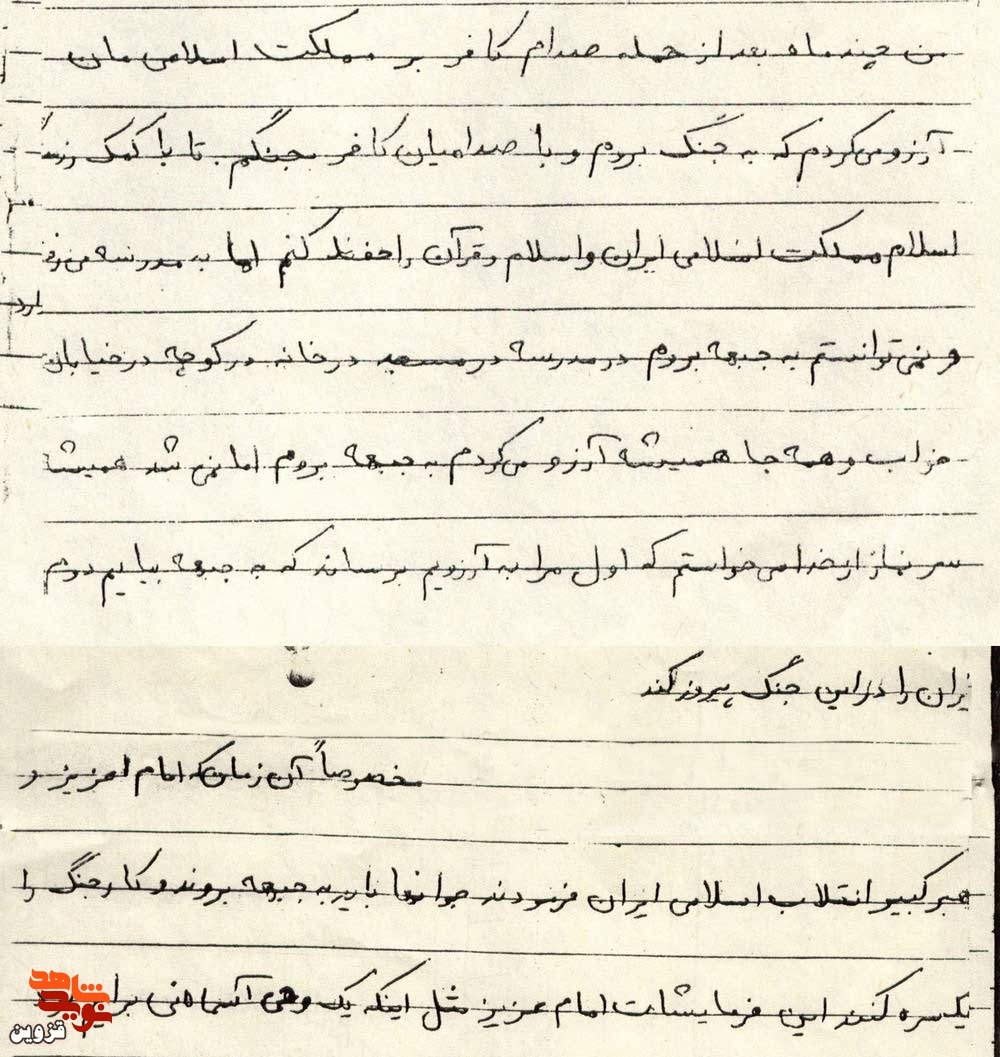 من چند ماه بعد از حمله صدام کافر بر مملکت اسلامی مان
آرزو می کردم که به جنگ بروم و با صدامیان کافر بجنگم تا با کمک
اسلام مملکت اسلامی ایران و اسلام و قرآن را حفظ کنم اما به مدرسه
و نمی توانستم به جبهه بروم در مدرسه در مسجد در خانه در کوچه در خیابان
خواب و همه جا همیشه آرزو می کردم به جبهه بروم اما نمی شد همیشه
سر نماز از خدا می خواستم که اول مرا به آرزویم برساند که به جبهه بیایم دوم
یران را در این جنگ پیروز کند
مخصوصاً آن زمان که امام عزیز و
هبر کبیر انقلاب اسلامی ایران فرمودند جوانها باید به جبهه بروند و کار جنگ را
یک سره کنند این فرمایشات امام عزیز مثل اینکه یک وحی آسمانی برای
نوید شاهد
قزوین